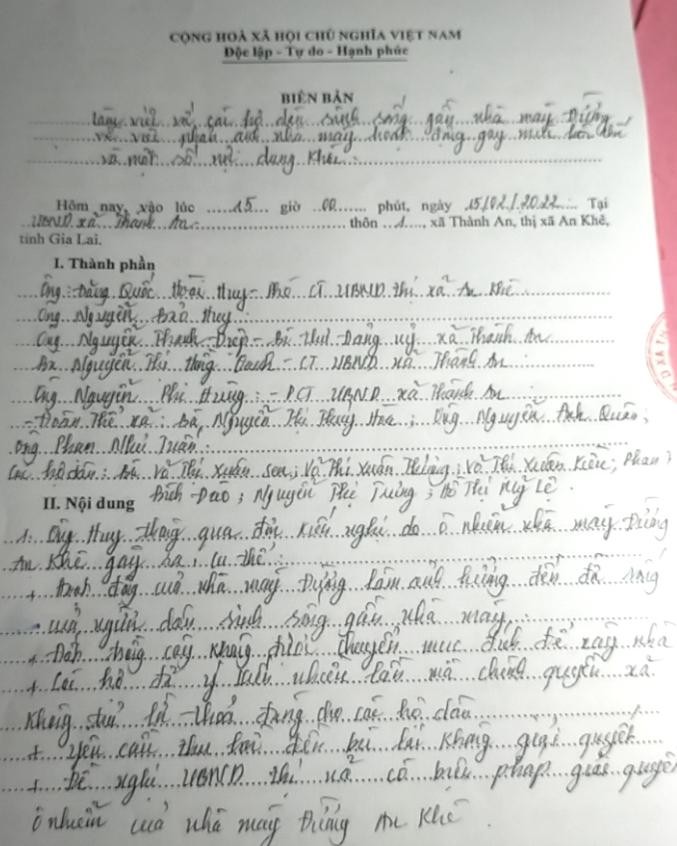 CỘNG HOÀ XÃ HỘI CHỦ NGHĨA VIỆT NAM
Độc lập - Tự do - Hạnh phúc
BIÊN BẢN
làm việc với các hộ dân sinh sống gần nhà máy Đường
về việc phản ánh nhà máy hoạt động gây mùi hôi
và một số nội dung khác:
Hôm nay, vào lúc 15 giờ 00 phút, ngày 15/02/2022. Tại
UBND xã Thành An thôn 1, xã Thành An, thị xã An Khê,
tỉnh Gia Lai.
I. Thành phần
Ông: Đặng Quốc Huy - Phó CT UBND thị xã An Khê
Ông Nguyễn Bảo Huy
Ông Nguyễn Thanh - Bí thư Đảng uỷ xã Thành An
Bà Nguyễn Thị Hồng - CT UBND xã Thành An
Ông Nguyễn Phi Hùng: - PCT UBND xã Thành An
- Đoàn thể xã: Bà Nguyễn Thị Thuý Hoa; Ông Nguyễn Anh Quân;
Ông Phan Như Tuấn:
Các hộ dân: Bà Võ Thị Xuân Sen; Võ Thị Xuân Thắng; Võ Thị Xuân Kiều; Phan Thị
Bích Đào; Nguyễn Thị Trưng; Hồ Thị Mỹ Lệ.
II. Nội dung
1. Ông Huy thông qua đơn kiến nghị do ô nhiễm nhà máy Đường
An Khê gây ra, cụ thể:
+ hoạt động của nhà máy Đường làm ảnh hưởng đến đời sống
của người dân sinh sống gần nhà máy
+ Đất trồng cây không được chuyển mục đích để xây nhà
+ Các hộ đã ý kiến nhiều lần mà chính quyền xã
không thoả đáng cho các hộ dân
+ yêu cầu thu hồi đền bù lại không giải quyết
+ Đề nghị UBND thị xã có biện pháp giải quyết
ô nhiễm của nhà máy Đường An Khê.